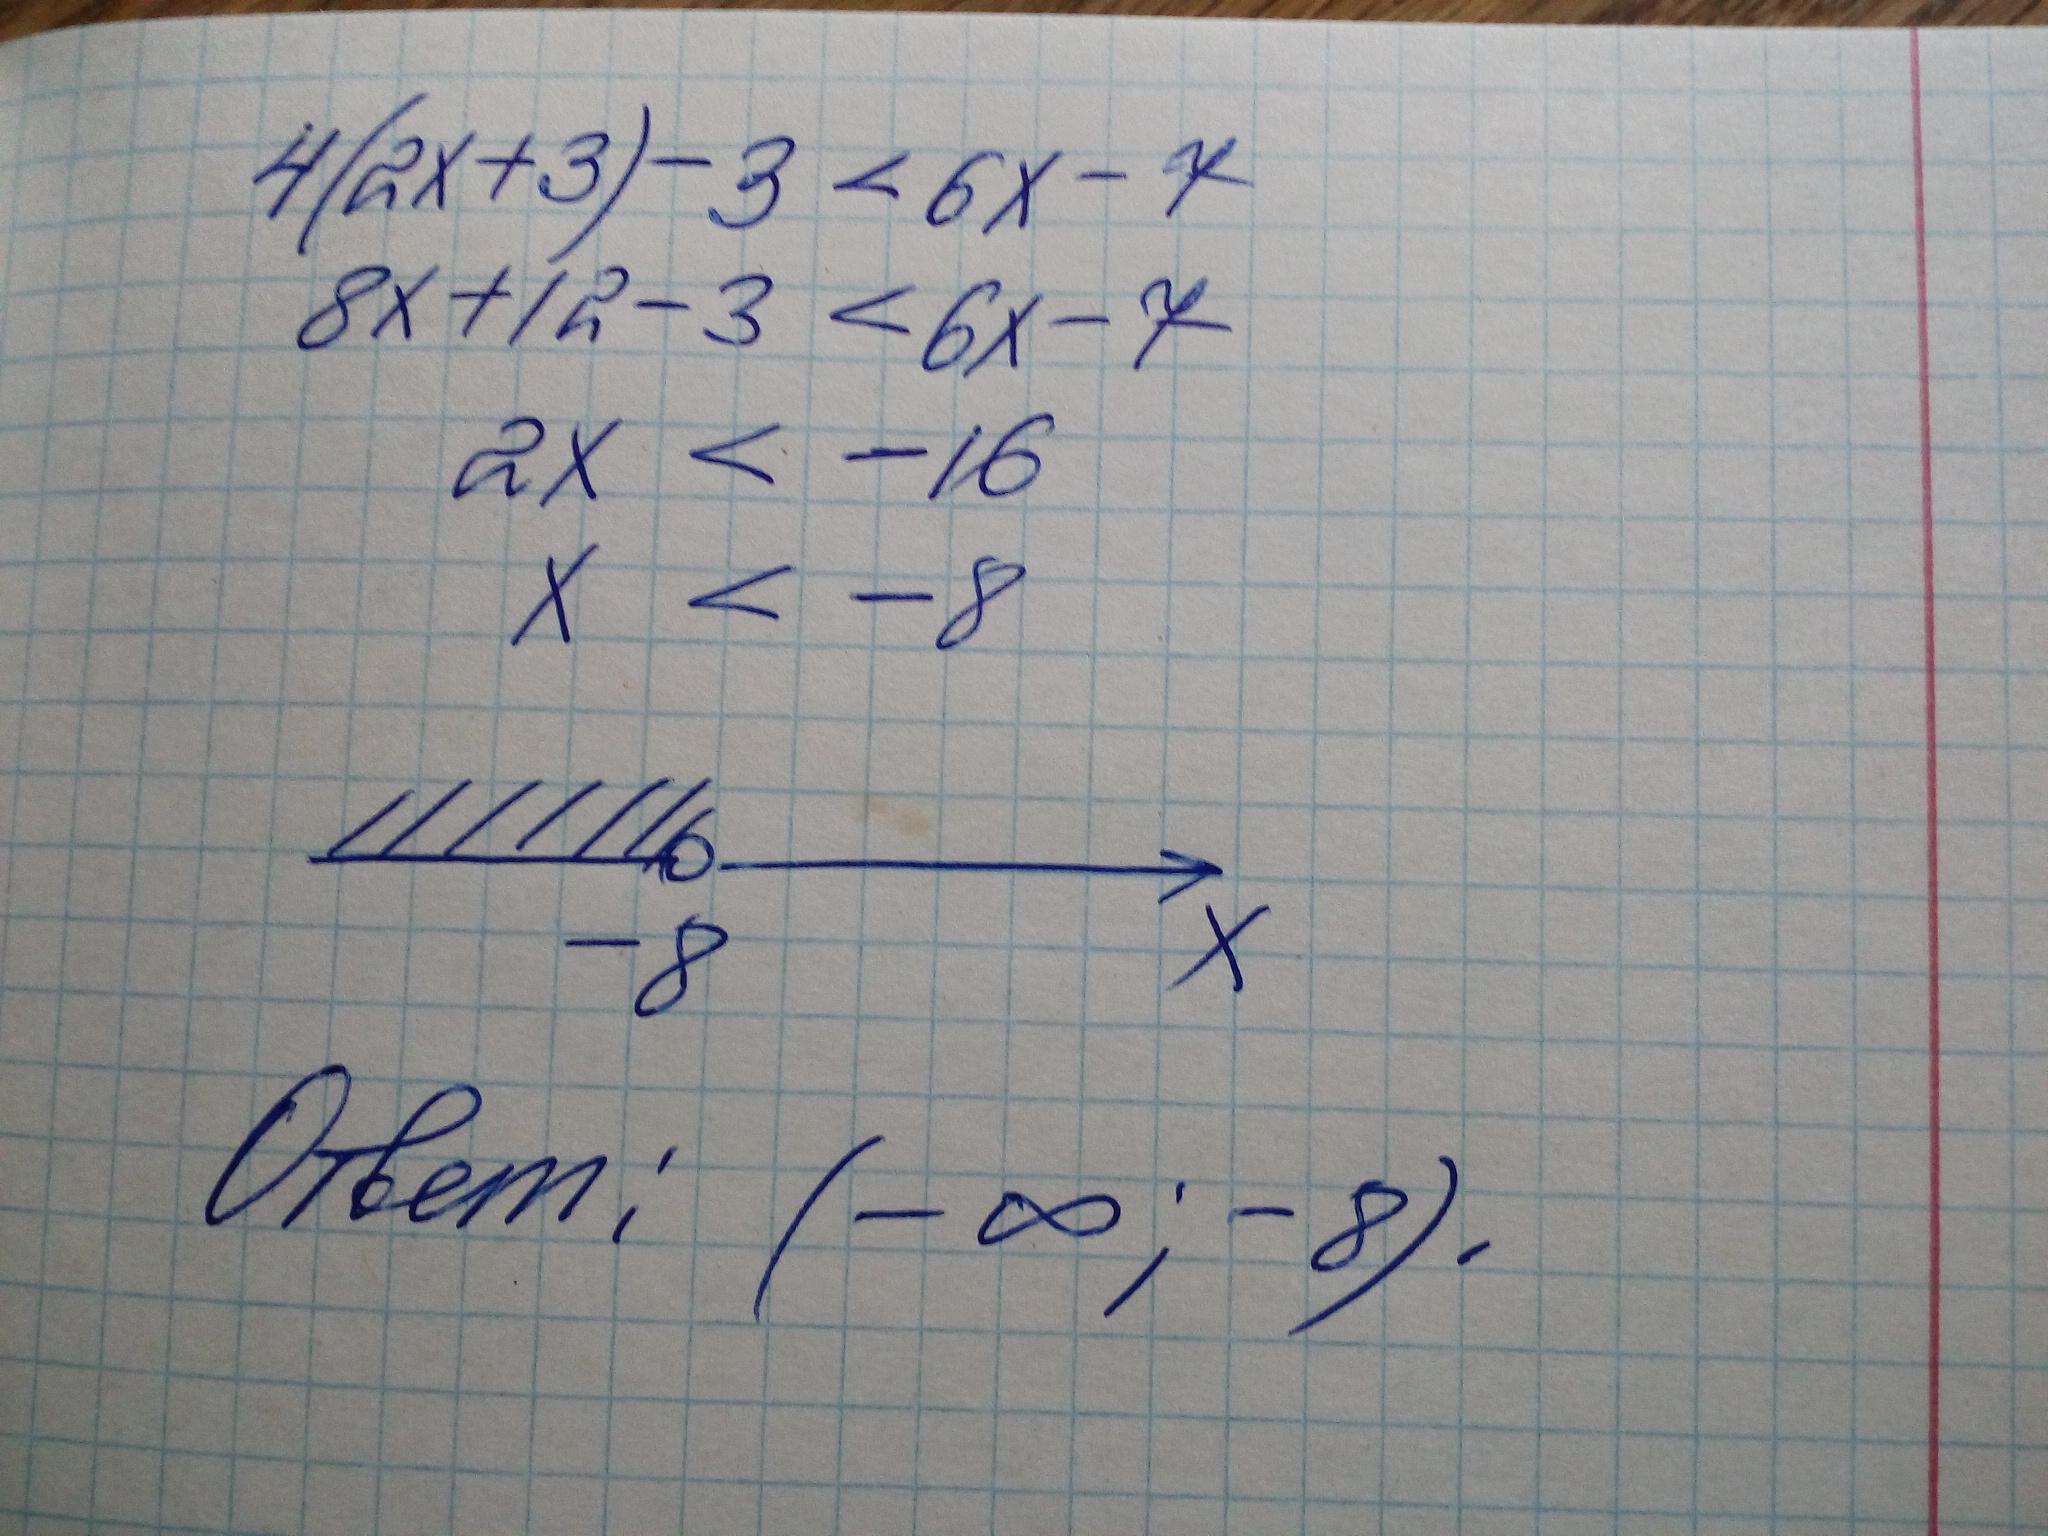 4(2x+3)-3 < 6x-7
8x+12-3 < 6x-7
2x < -16
x < -8
-8 x
Ответ: (-∞; -8).